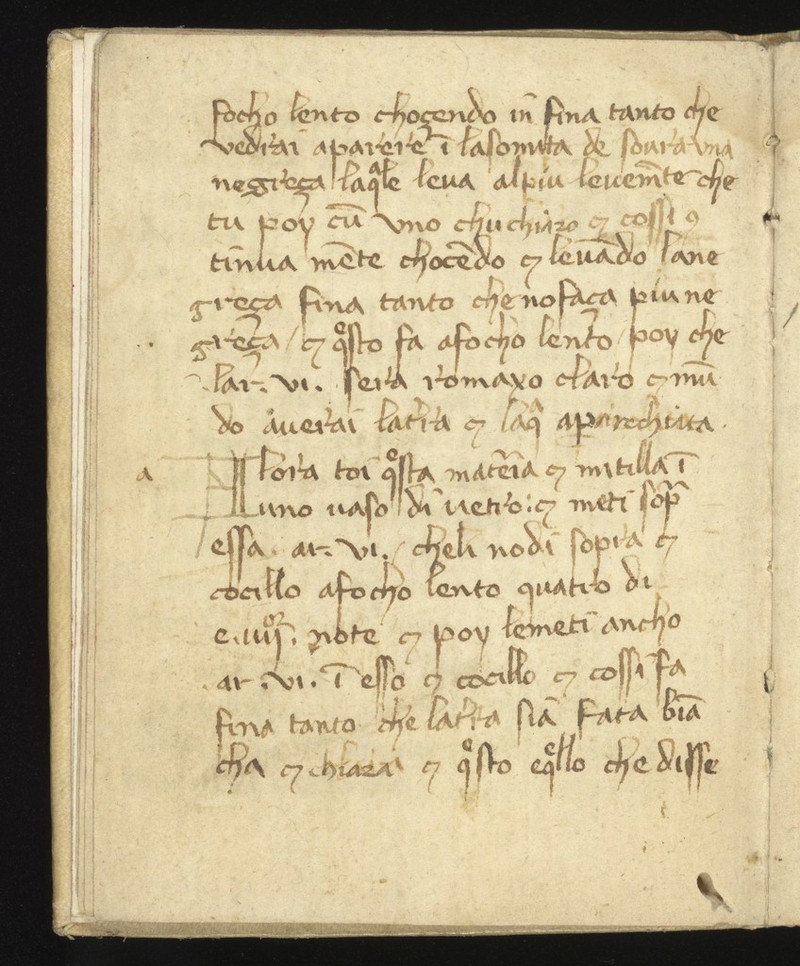 focho lento chocendo in fina tanto che
vedrai aparere ī lasomita de soura una
negreça laq̄le leva alpiu levem̄te che
tu poy cū uno chuchiaro ⁊ cossi ꝯ
tinua mēte chocēdo ⁊ levādo lane
greça fina tanto che nofaça piu ne
greça / ⁊ qͦsto fa afocho lento / poy che
lar. vi. sera romaxo claro ⁊ mū
do averai latr̄ra ⁊ laq̄ aparechiata.
a Allora toi qͦsta matēia ⁊ mitilla ī
uno vaso di vetro: ⁊ meti sop̄
essa. ar. vi. / cheli nodi sopra ⁊
cocillo afocho lento quatro di
e. iiijͦʳ. note ⁊ poy lemeti ancho
ar. vi. ī esso ⁊ cocillo ⁊ cossi fa
fina tanto che latr̄ra siā fata biā
cha ⁊ chiara ⁊ qͦsto eqͦllo che disse